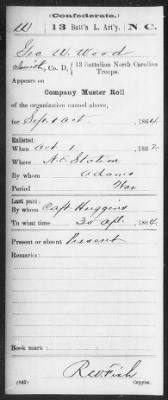 (Confederate.)
W 13 Batt'n L. Art'y. N C.
Geo W. Wood
Co. D, 13 Battalion North Carolina Troops.
Appears on
Company Muster Roll
of the organization named above,
for Sept & Oct, 1864.
Enlisted:
When Oct 1, 1862.
Where Station
By whom Adams
Period War
Last paid:
By whom Capt Huggins
To what time 30 Apl, 1864.
Present or absent Present
Remarks:
Book mark:
R W Fish
(642) Copyist.